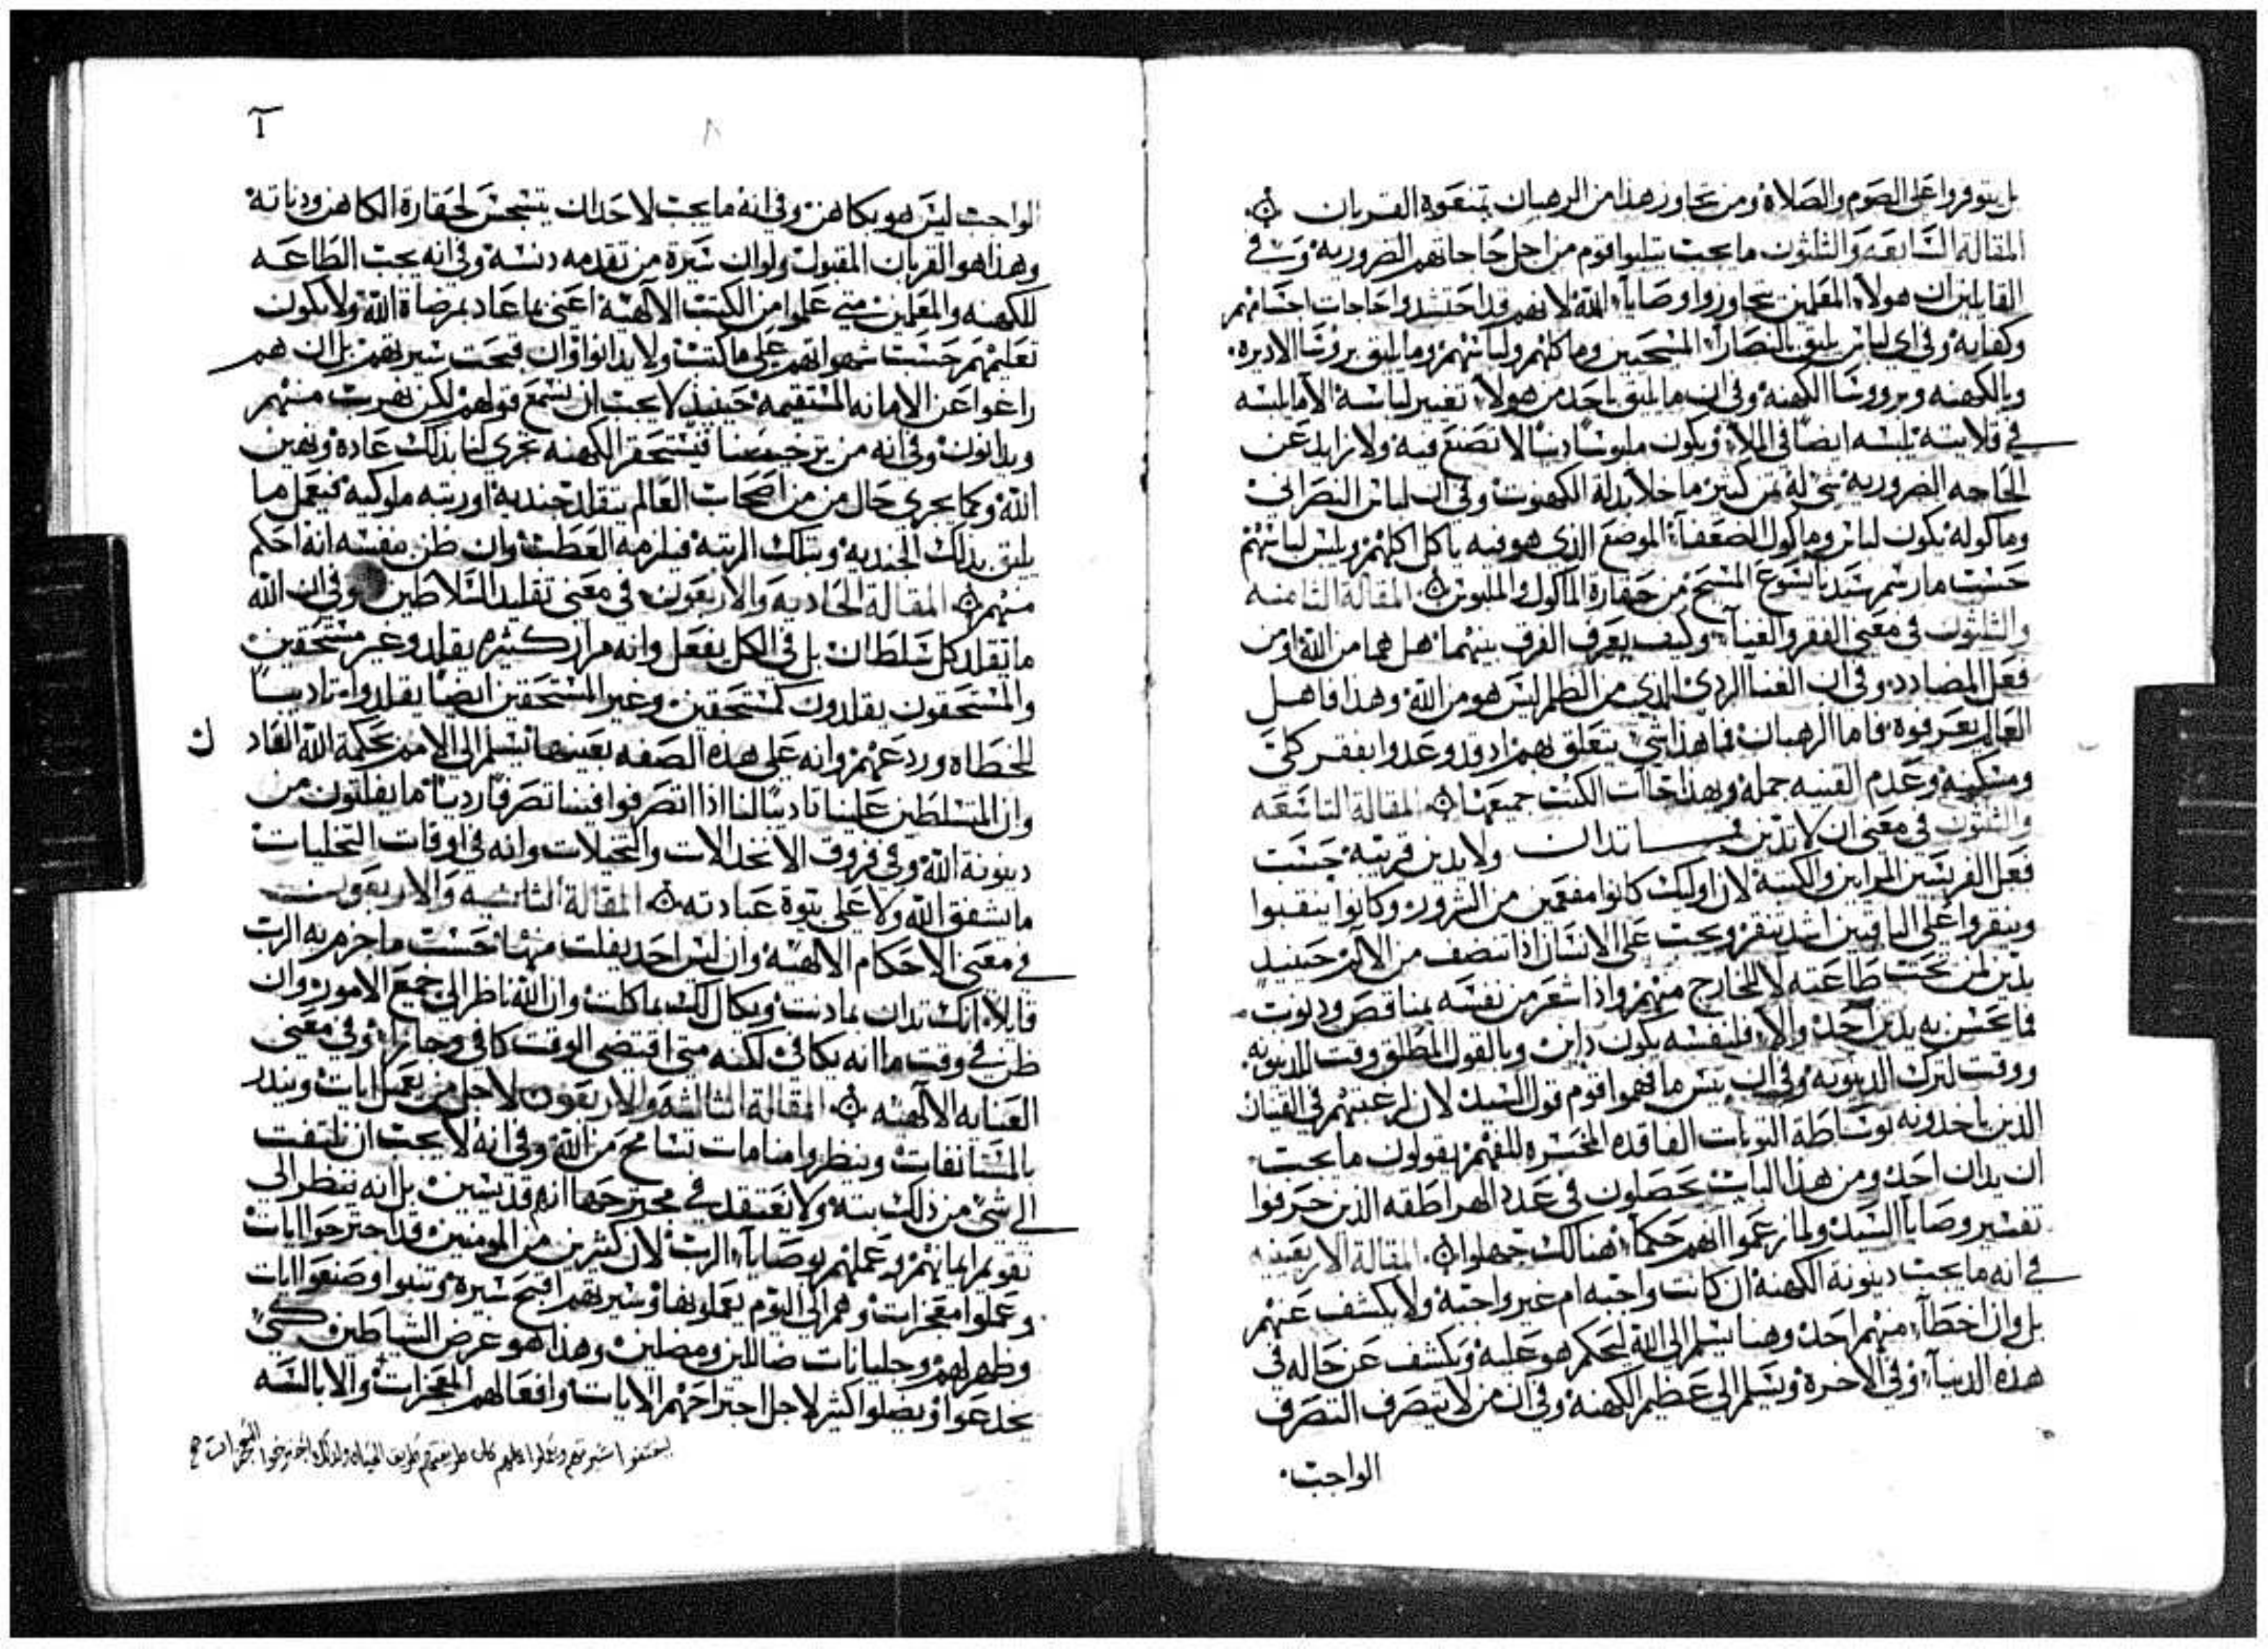 بل يتوفروا على الصوم والصلاة ومن تجاوز هذا من الرهبان تمنعوه القربان
المقالة السابعه والثلثون ما يجب يتلبوا قوم من اجل حاجاتهم الضروريه وفي
القايلين ان هولاء المعلمين تجاوزوا وصايا الله لانهم قد احتشدوا حاجات اجسامهم
وكفايه وفي اي لباس يليق بالنصارا المسيحيين وماكلهم ولباسهم وما يليق بروسا الاديره
وبالكهنه وبرووسا الكهنه وفي ان ما يليق باحد من هولاء تغيير لباسه الا ما يلبسه
في قلايته يلبسه ايضا في الملاء ويكون ملبوسا دنيا لا تصنع فيه ولا زايد عن
الحاجه الضروريه شي له ثمن كبير ما خلا بدلة الكهنوت وفي ان لباس النصراني
وماكوله يكون لباس وماكول الضعفاء الموضع الذي هو فيه ياكل اكلهم ويلبس لباسهم
حسب ما رسم سيدنا يسوع المسيح من حقارة الماكول والملبوس المقالة الثامنه
والثلثون في معنى الفقر والغنا وكيف يعرف الفرق بينهما هل هما من الله او من
فعل المضادد وفي ان الغنا الردي الذي من الظلم ليس هو من الله وهذا فاهل
العالم يعرفوه فاما الرهبان فما هذا شي يتعلق بهم اذ قد وعدوا بفقر كلي
ومسكنيه وعدم القنيه جمله وبهذا جاات الكتب جميعها المقالة التاسعه
والثلثون في معنى ان لا تدين فما تدان ولا يدين قريبه حسب
فعل الفريسيين المرايين والكتبه لان اوليك كانوا مفعمين من الشرور وكانوا ينقبوا
وينقروا على الباقيين اشد تنقير ويجب على الانسان اذا تنصف من الالام حينيذ
يدين لمن تحت طاعته لا للخارج منهم واذا شعر من نفسه بمناقص وديوت
فما يحسن به يدين احد والا فلنفسه يكون داين وبالقول المطلق وقت للدينونه
ووقت لترك الدينونه وفي ان بيس ما فهموا قوم قول السيد لان لرغبتهم في
الذين ياخدونه بوساطة التوبات الفاقده المخسره للفهم يقولون ما يجب
ان يدان احد ومن هذا الباب يحصلون في عدد الهراطقه الذين حرفوا
تفسير وصايا السيد ولما زعموا انهم حكما هنالك جهلوا المقالة الاربعينيه
في انه ما يجب دينونة الكهنة ان كانت واجبه ام غير واجبة ولا يكشف عنهم
بل وان اخطا منهم احد وهنا يسلم الى الله ليحكم هو عليه ويكشف عن حاله في
هذه الدنيا وفي الاخرة ويسلم الى عظيم الكهنه وفي ان من لا يتصرف التصرف
الواجب
الواجب ليس هو بكاهن وفي انه ما يجب لاحد ان يتسجس لحقارة الكاهن ودناته
وهذا هو القربان المقبول ولو ان سيرة من تقدمه دنسه وفي انه يجب الطاعه
للكهنه والمعلمين متى علموا من الكتب الالهيه اعنى بما عاد بمرضاة الله ولا يكون
تعليمهم حسب شهواتهم على ما كتب ولا يدانوا وان قبحت سيرتهم بل ان هم
راغوا عن الامانه المستقيمه حينيذ لا يجب ان نسمع قولهم لكن نهرب منهم
ويدانون وفي انه من فيستحقر الكهنه تجرى لنا بذلك عادة ونهين
الله وكما يجرى حال من من اصحاب العالم يتقلد جنديه او رتبه ملوكيه فيعمل ما
يليق بذلك الجنديه وبتلك الرتبه فيلزمه العطب وان ظن بنفسه انه احكم
منهم المقالة الحاديه والاربعون في معنى تقليد السلاطين وفي ان الله
ما يقلد كل سلطان بل في الكل يفعل وانه مرار كثيره يقلد وغير مستحقين
والمستحقون يقلدون كمستحقين وغير المستحقين ايضا يقلدوا تاديبا
للخطاه وردعهم وانه على هذه الصفه بعينها تسلم الى الامم بحكمة الله العاد
ل
وان المتسلطين علينا تاديبا لنا اذا تصرفوا فينا تصرفا رديا ما يفلتون من
دينونة الله وفي فروق الانخدالات والتخيلات وانه في اوقات التخليات
ما يشفق الله ولا على بتوة عبادته المقالة الثانيه والاربعون
في معنى الاحكام الالهيه وان ليس احد يفلت منها حسب ما جزم به الرب
قايلا انك تدان بما دنت ويكال لك بما كلت وان الله ناظر الى جميع الامور وان
ظن في وقت ما انه يكافى لكنه متى اقتضى الوقت كافى وجازا وفي معنى
العنايه الالهيه المقالة الثالثة والاربعون لاجل من يعمل ايات وينذر
بالمستانفات وينظروا منامات تسامح من الله وفي انه لا يجب ان يلتفت
الى شي من ذلك بته ولا نعتقد في مجترحها انهم قديسين بل انه ننظر الى
تقويم ايمانهم وعملهم بوصايا الرب لان كثيرين من المومنين قد اجترحوا ايات
وعملوا معجزات وهم الى اليوم يعملونها وسيرتهم اقبح سيره وتنبوا وصنعوا ايات
وظهر لهم وجليانات ضالين ومضلين وهذا هو غرض الشياطين كي
يخدعوا ويضلوا اكثر لاجل اجتراحهم الايات وافعالهم المعجزات والابالسه